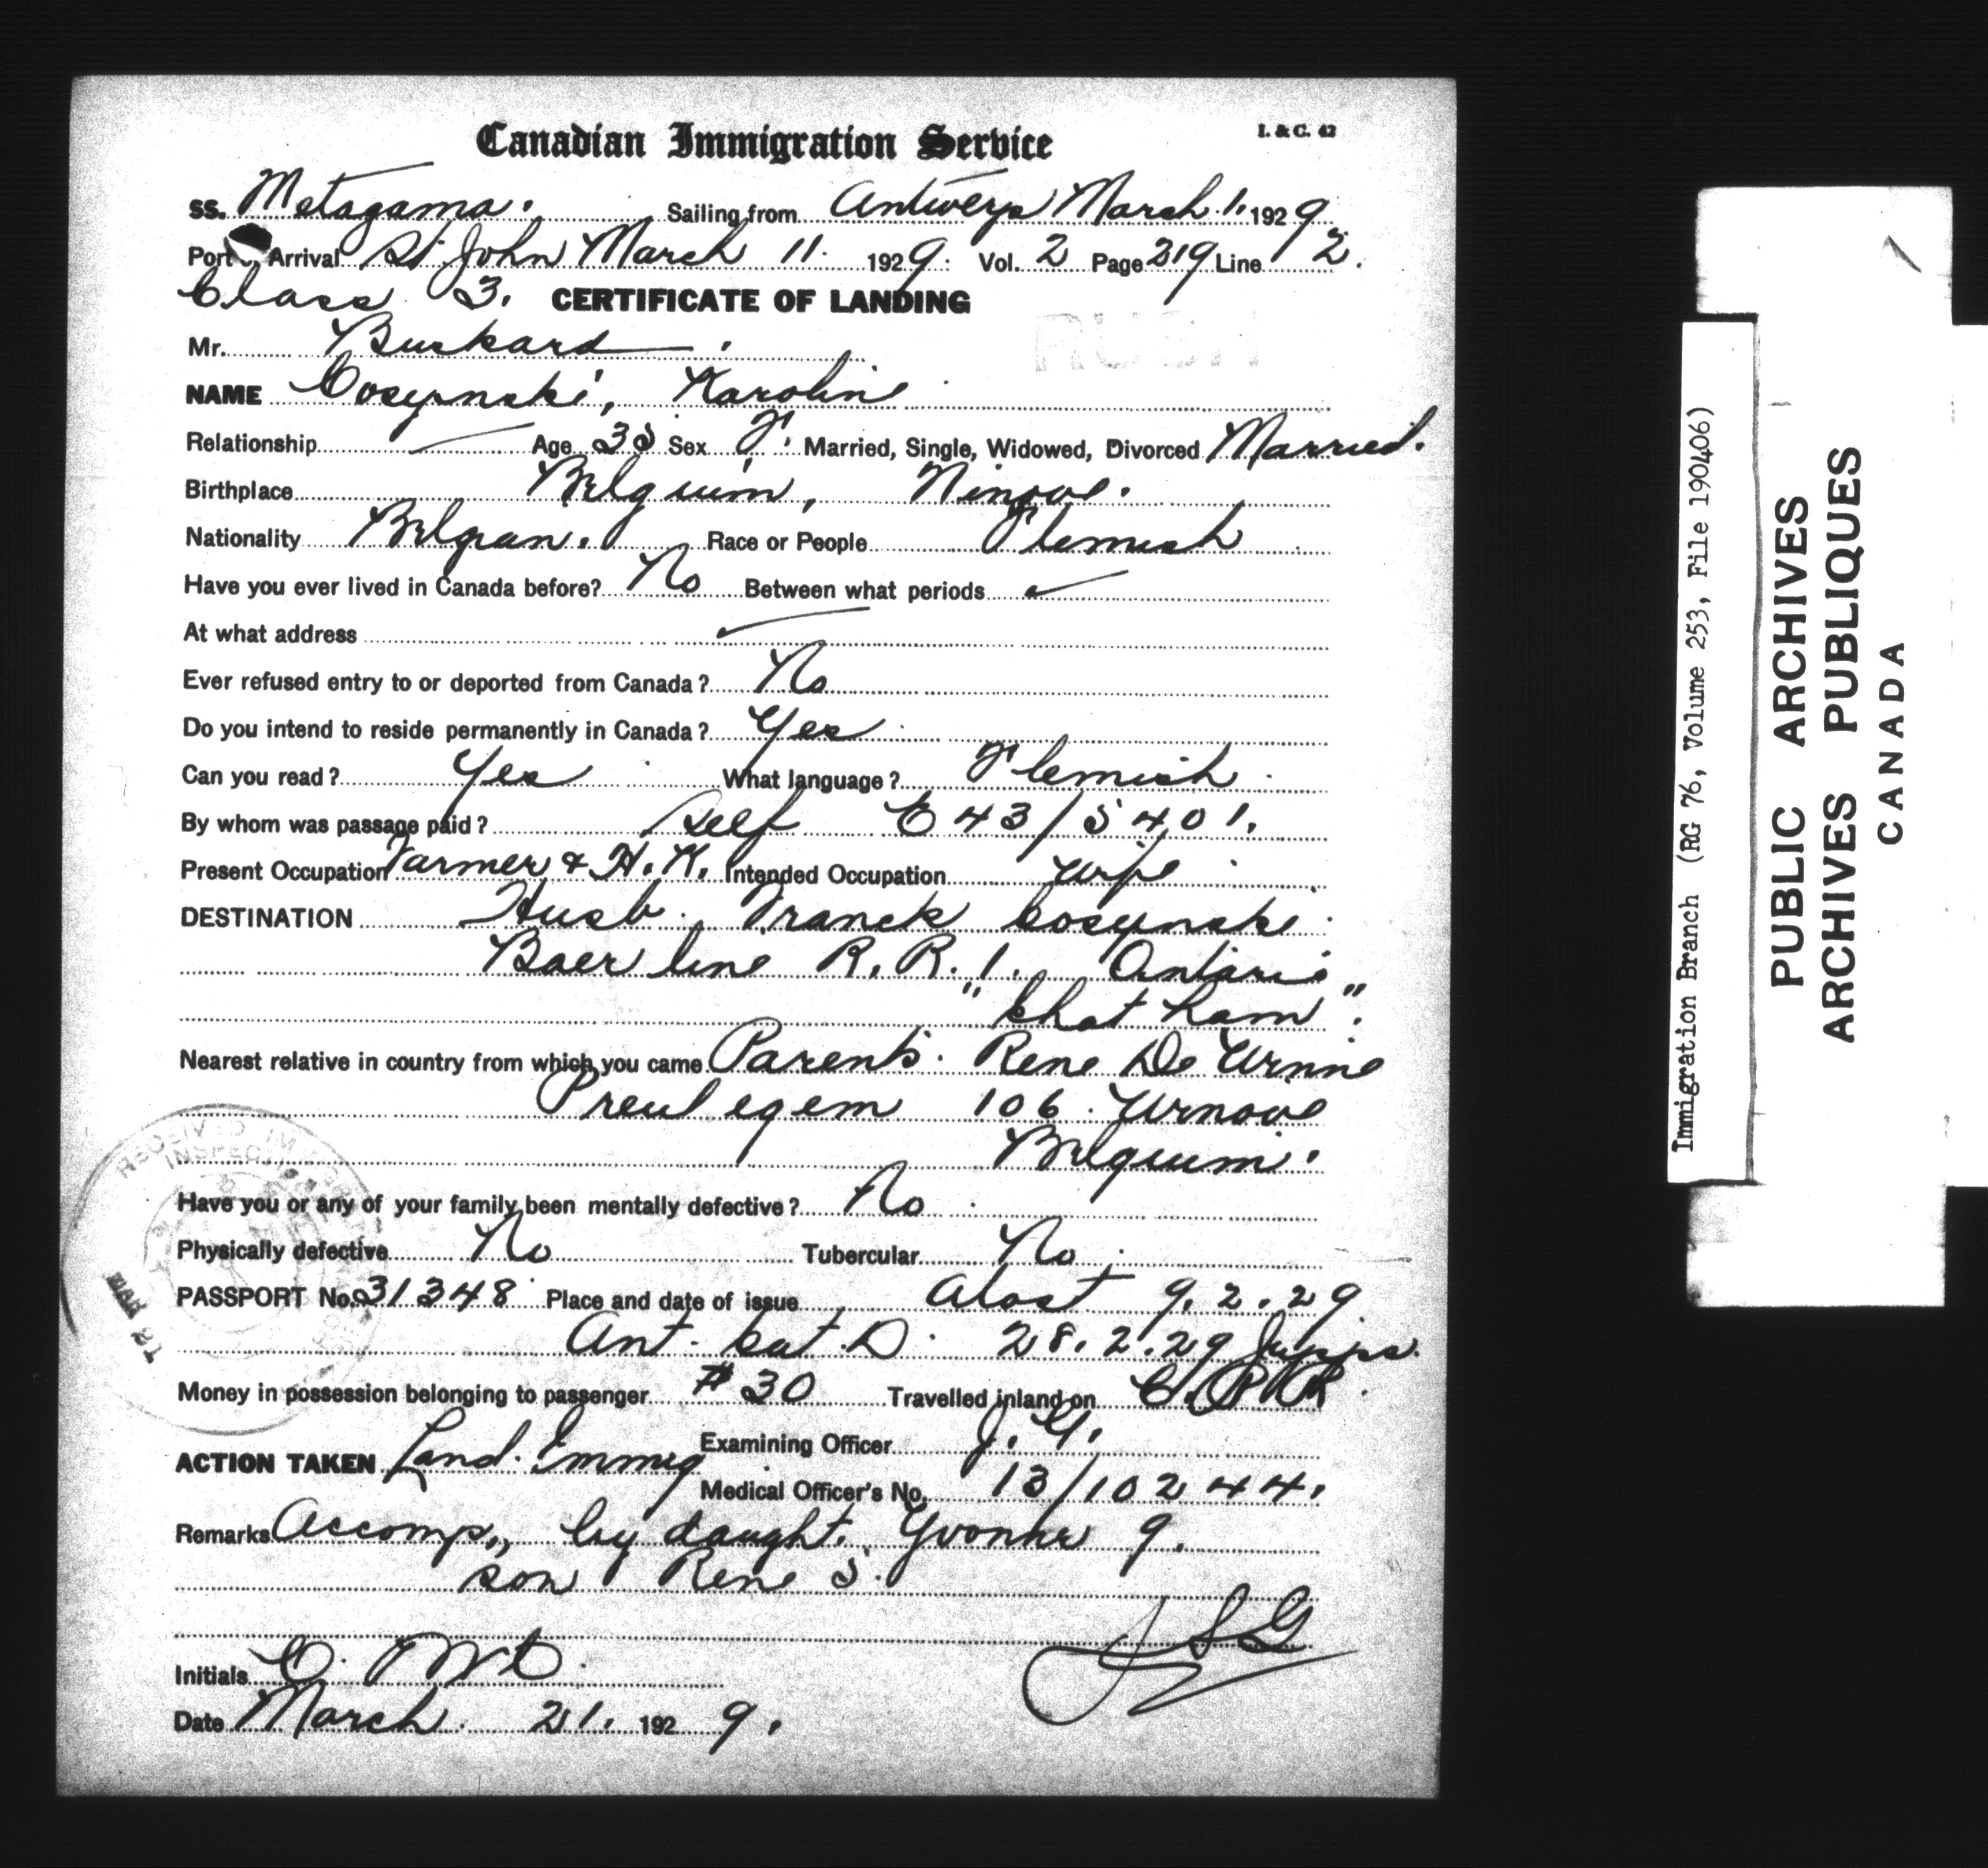 Canadian Immigration Service
I. & C. 42
SS. Metagama. Sailing from Antwerp March 1. 1929
Port Arrival St John March 11. 1929. Vol. 2 Page 219 Line 2.
Class 3. CERTIFICATE OF LANDING
RUSH
Mr. Buskard
NAME Cosynski, Karoline
Relationship Age 35 Sex F. Married, Single, Widowed, Divorced Married.
Birthplace Belguim, Ninove.
Nationality Belgian. Race or People Flemish
Have you ever lived in Canada before? No Between what periods
At what address
Ever refused entry to or deported from Canada? No
Do you intend to reside permanently in Canada? Yes
Can you read? Yes What language? Flemish
By whom was passage paid? Self E43/5401.
Present Occupation Farmer & H.K. Intended Occupation Wife
DESTINATION Husb. Franck Cosynski.
Baer line R.R. 1. Ontario
"Chatham".
Nearest relative in country from which you came Parents. Rene De
106
Belguium.
Have you or any of your family been mentally defective? No
Physically defective No Tubercular No.
PASSPORT No. 31348 Place and date of issue Alost 9.2.29
Ant. Cat. D. 28.2.29
Money in possession belonging to passenger #30 Travelled inland on C.P.R.
Examining Officer J.G.
ACTION TAKEN Land. Immig
Medical Officer's No. 13/10244.
Remarks Accomp., by daught. Yvonne 9.
son Rene 5.
JSG
Initials
Date March. 21. 1929.
MAR 12
Immigration Branch (RG 76, Volume 253, File 190406)
PUBLIC ARCHIVES
ARCHIVES PUBLIQUES
CANADA